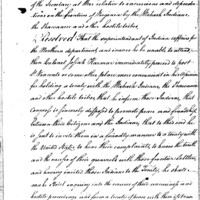 of the Secretary at War relative to incursions and depreda-
tions on the frontiers of Virginia by the Wabash Indians,
the Shawanese and other hostile tribes.
Resolved That the superintendant of Indian affairs for
the Northern department, and in case he be unable to attend,
then Colonel Josiah Harmar immediately proceed to post
St Vincents or some other place more convenient in his opinion
for holding a treaty with the Wabash Indians, the Shawanese
and other hostile tribes; that he inform those Indians, that
Congress is sincerely disposed to promote peace and friendship
between their Citizens and the Indians, that to this end he
is sent to invite them in a friendly manner to a treaty with
the United States, to hear their complaints, to know the truth
and the causes of their quarrels with those frontier settlers
and having invited those Indians to the treaty, he shall
make strict enquiry into the causes of their uneasiness and
hostile proceedings and form a treaty of peace with them if it can